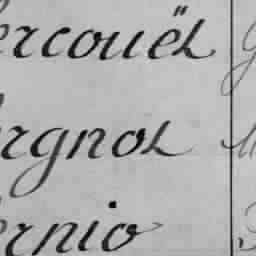 ercouët
rgnot
ernio